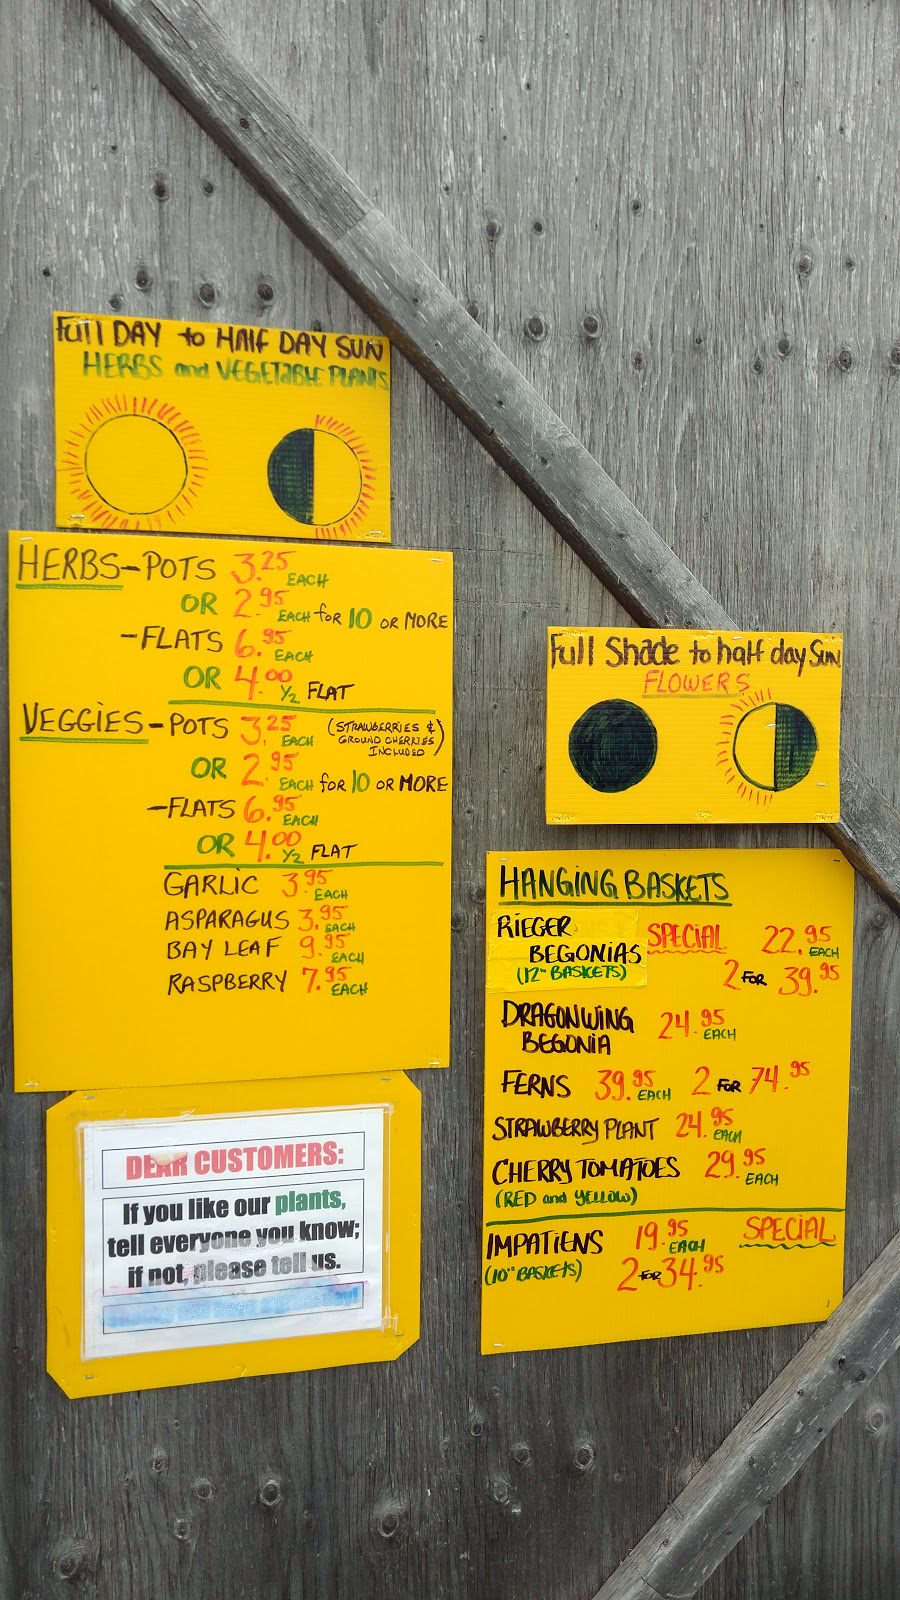 Full DAY to HALF DAY SUN
HERBS and VEGETABLE PLANTS
HERBS-POTS 3.25 EACH
OR 2.95 EACH for 10 OR MORE
-FLATS 6.95 EACH
OR 4.00 1/2 FLAT
VEGGIES-POTS 3.25 EACH (STRAWBERRIES & GROUND CHERRIES INCLUDED)
OR 2.95 EACH for 10 OR MORE
-FLATS 6.95 EACH
OR 4.00 1/2 FLAT
GARLIC 3.95 EACH
ASPARAGUS 3.95 EACH
BAY LEAF 9.95 EACH
RASPBERRY 7.95 EACH
DEAR CUSTOMERS:
If you like our plants,
tell everyone you know;
if not, please tell us.
Full Shade to half day SUN
FLOWERS
HANGING BASKETS
RIEGER BEGONIAS SPECIAL 22.95 EACH
(12" BASKETS) 2 FOR 39.95
DRAGONWING BEGONIA 24.95 EACH
FERNS 39.95 EACH 2 FOR 74.95
STRAWBERRY PLANT 24.95 EACH
CHERRY TOMATOES 29.95 EACH
(RED and YELLOW)
IMPATIENS 19.95 EACH SPECIAL
(10" BASKETS) 2 FOR 34.95